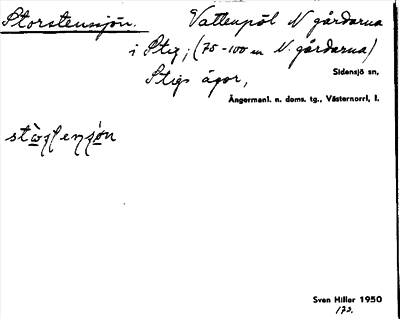 Storstensjön. Vattenpöl N gårdarna
i Stig; (75-100 m N. gårdarna)
Stigs ägor,
Sidensjö sn,
Ångermanl. n. doms. tg., Västernorrl, l.
Sven Hiller 1950
172.